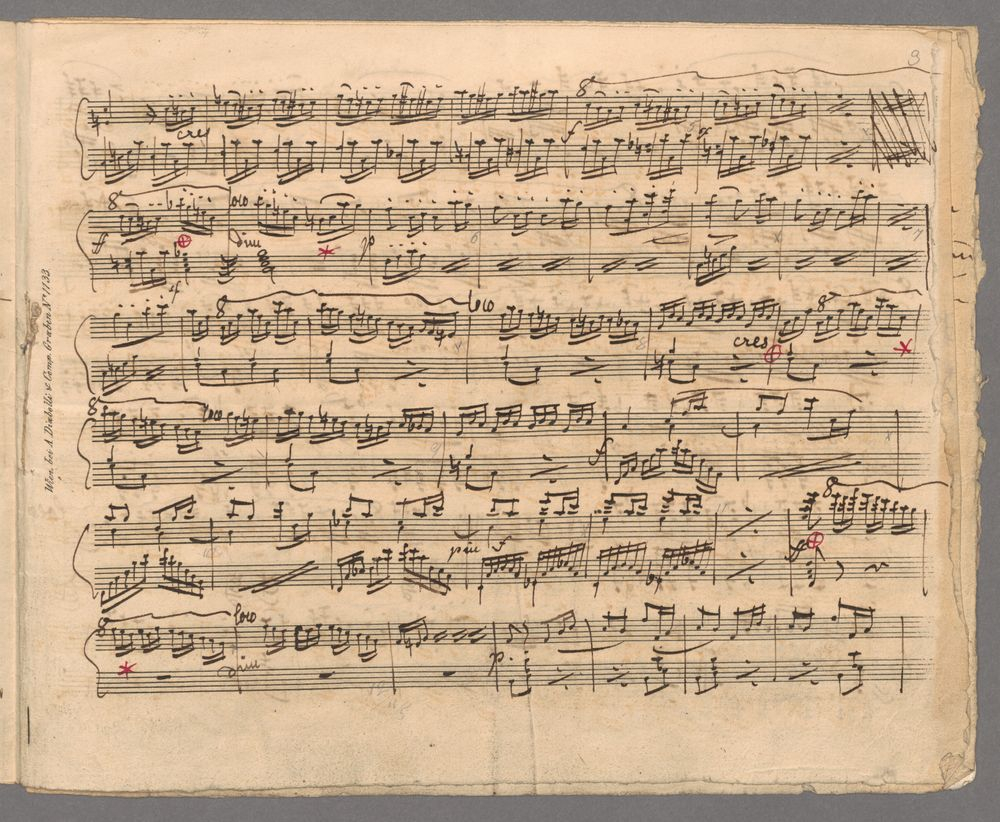 3
8
cres
f
8
loco
f
dim
p
Wien bei A. Diabelli & Comp. Graben No 1133.
8
loco
8
cres
8
loco
f
8
piu f
f
8
loco
dim
p